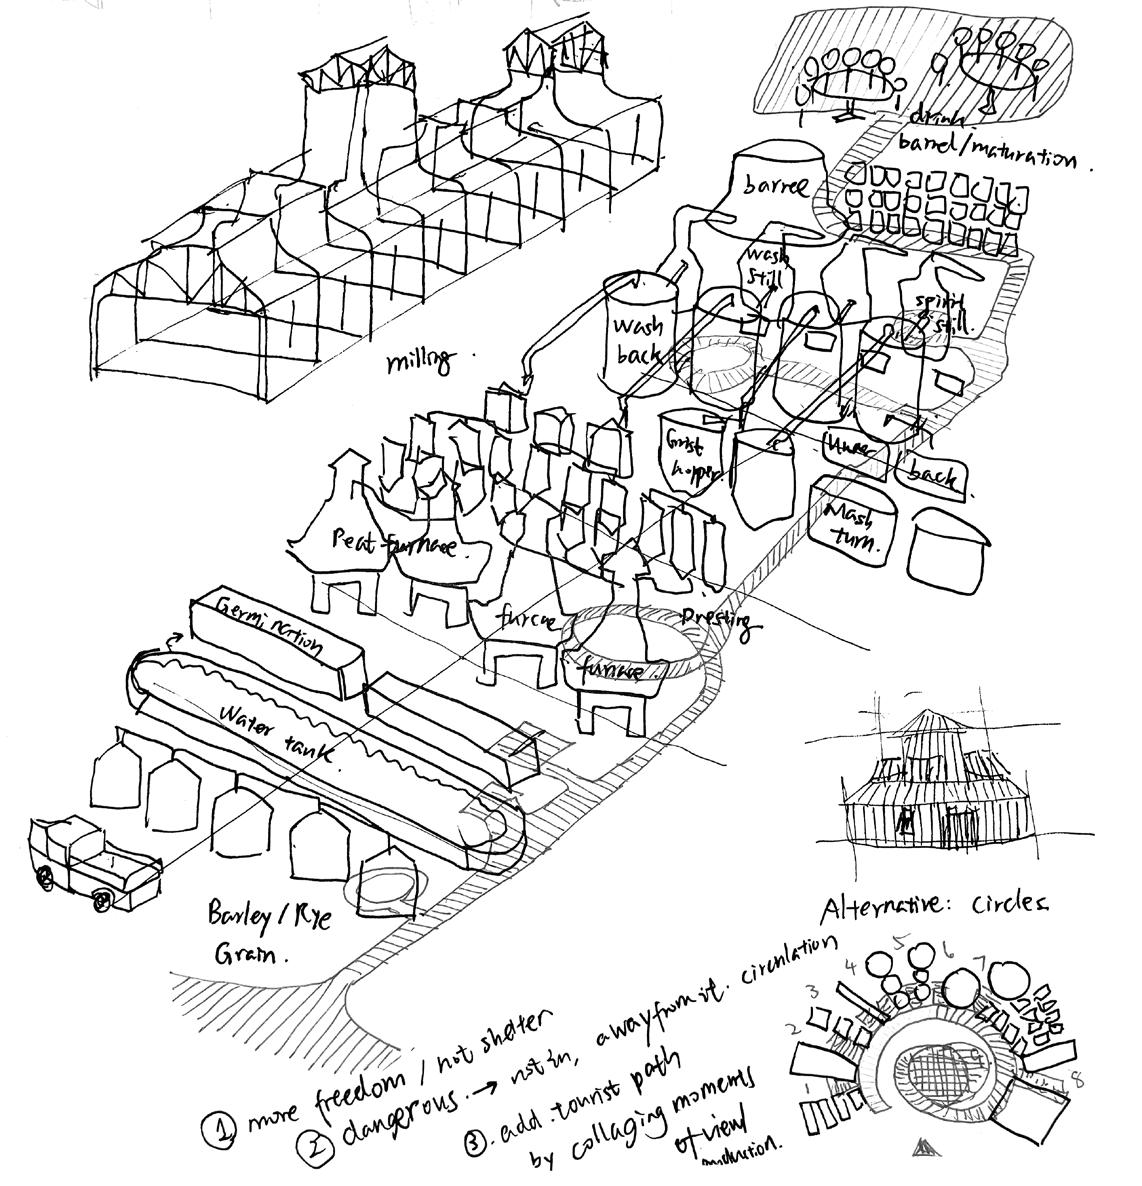 drink
barrel/maturation.
barrel
wash
still
spirit
still.
wash
back
milling.
Grist
hopper
Under
back
Mash
turn.
Peat furnace.
furcae
Presting
furnace
Germination
Water tank.
Barley / Rye
Grain.
Alternative: circles
1 2 3 4 5 6 7 8
① more freedom / not shelter
② dangerous. → not in, away from it. circulation
③. add tourist path
by collaging moments
of view